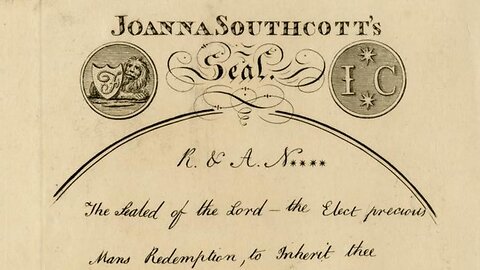 JOANNA SOUTHCOTT'S
Seal.
F
I C
R. & A. N****
The Sealed of the Lord — the Elect precious
Mans Redemption, to Inherit thee